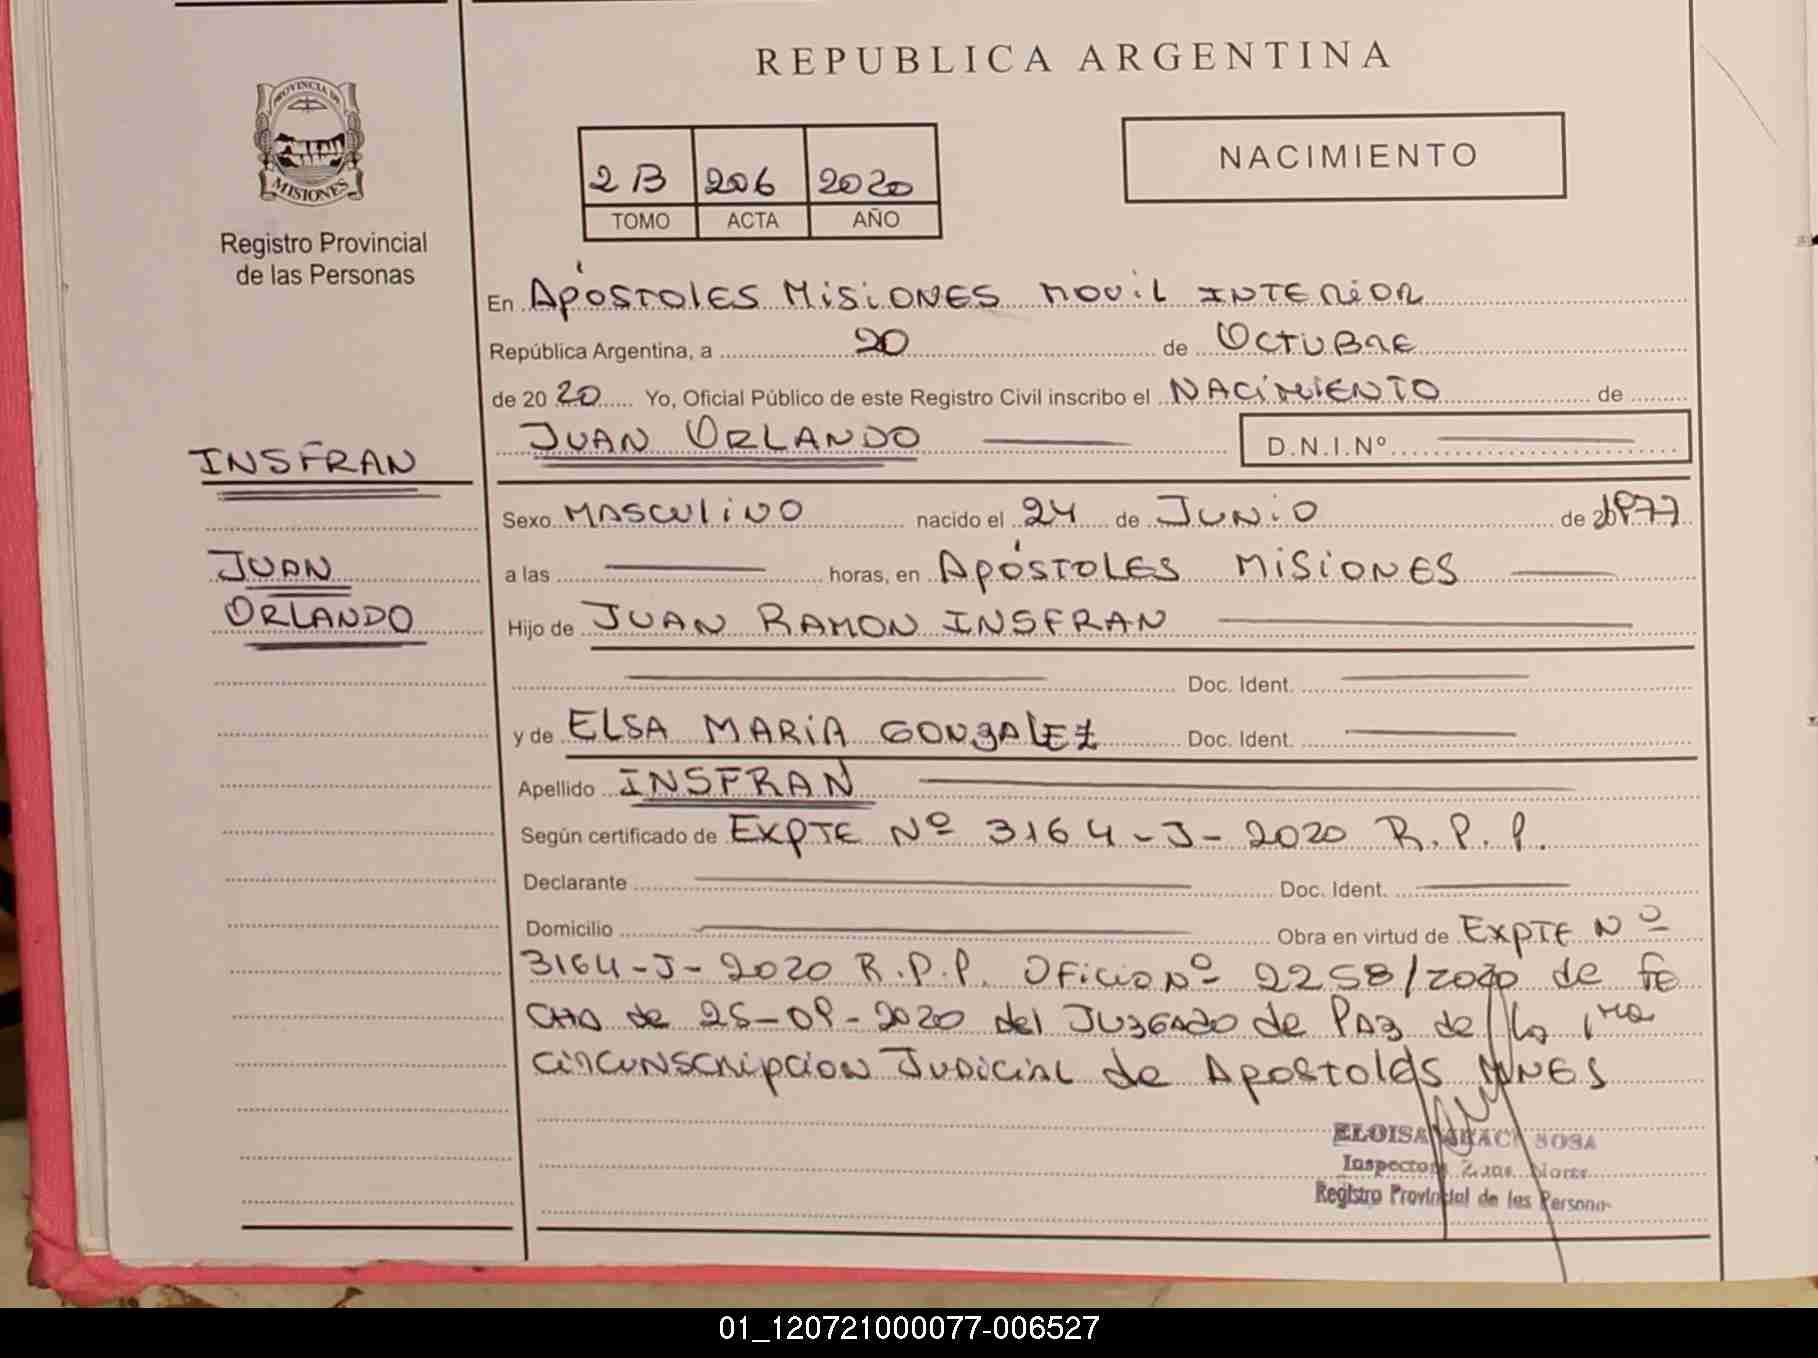 REPUBLICA ARGENTINA
PROVINCIA DE
MISIONES
Registro Provincial
de las Personas
NACIMIENTO
2B 206 2020
TOMO ACTA AÑO
En Apóstoles Misiones Movil Interior
República Argentina, a 20 de Octubre
de 20 20 Yo, Oficial Público de este Registro Civil inscribo el Nacimiento de
Juan Orlando D.N.I.Nº
INSFRAN
Sexo Masculino nacido el 24 de Junio de 1977
Juan
Orlando
a las horas, en Apóstoles Misiones
Hijo de Juan Ramon Insfran
Doc. Ident.
y de Elsa Maria Gonzalez Doc. Ident.
Apellido INSFRAN
Según certificado de Expte Nº 3164-J-2020 R.P.P.
Declarante Doc. Ident.
Domicilio Obra en virtud de Expte Nº
3164-J-2020 R.P.P. Oficio Nº 2258/2020 de fe
cha de 25-09-2020 del Juzgado de Paz de la 1ra
circunscripcion Judicial de Apostoles Mnes
ELOISA SOSA
Inspector Zona Norte
Registro Provincial de las Persona
01_120721000077-006527